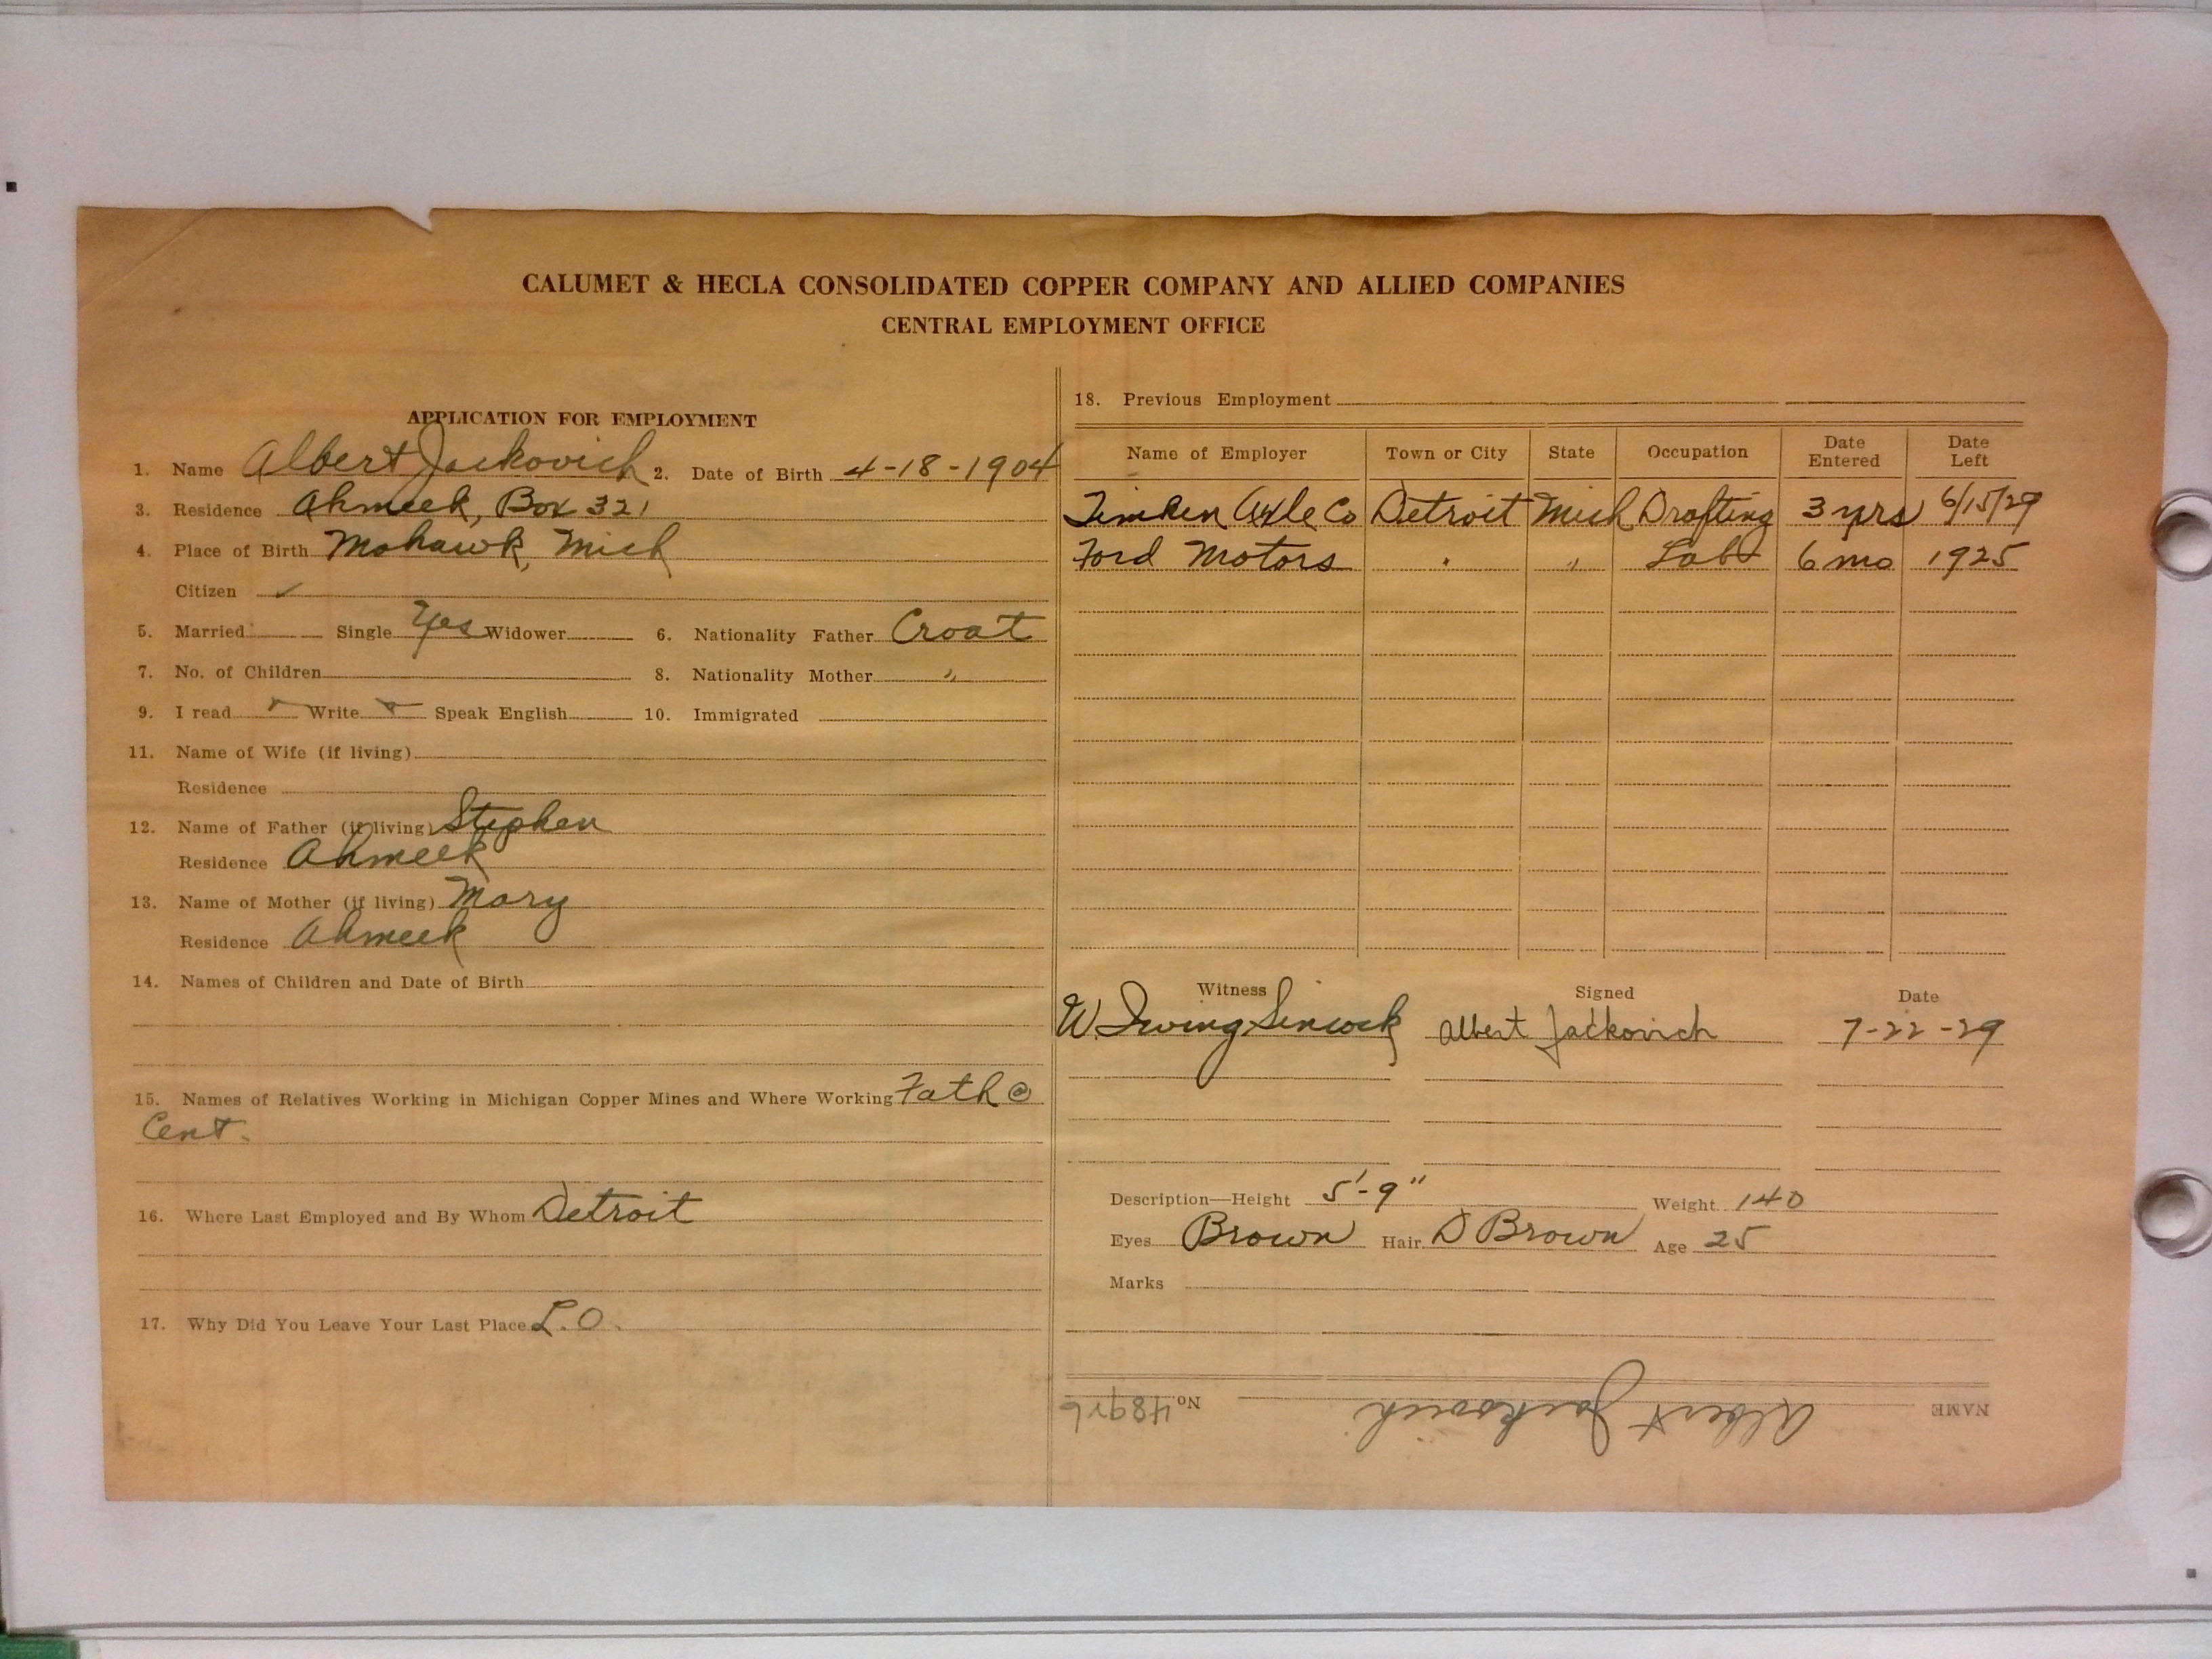 CALUMET & HECLA CONSOLIDATED COPPER COMPANY AND ALLIED COMPANIES
CENTRAL EMPLOYMENT OFFICE
APPLICATION FOR EMPLOYMENT
1. Name Albert Jackovich 2. Date of Birth 4-18-1904
3. Residence Ahmeek, Box 321
4. Place of Birth Mohawk, Mich
Citizen ✓
5. Married Single Yes Widower 6. Nationality Father Croat
7. No. of Children 8. Nationality Mother "
9. I read ✓ Write ✓ Speak English 10. Immigrated
11. Name of Wife (if living)
Residence
12. Name of Father (if living) Stephen
Residence Ahmeek
13. Name of Mother (if living) Mary
Residence Ahmeek
14. Names of Children and Date of Birth
15. Names of Relatives Working in Michigan Copper Mines and Where Working Fath @
Cent.
16. Where Last Employed and By Whom Detroit
17. Why Did You Leave Your Last Place L.O.
18. Previous Employment
Name of Employer Town or City State Occupation Date Entered Date Left
Timken Axle Co Detroit Mich Drafting 3 yrs 6/15/29
Ford Motors " " Lab 6 mo 1925
Witness Signed Date
W. Irving Sincock Albert Jackovich 7-22-29
Description—Height 5'-9" Weight 140
Eyes Brown Hair D Brown Age 25
Marks
NAME Albert Jackovich No. 48926